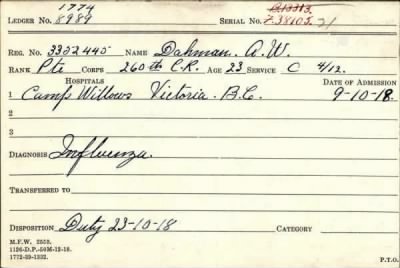 1774
LEDGER NO. 8989 SERIAL NO. 7.38105.21
REG. NO. 3352445 NAME Dahman. A.W.
RANK Pte CORPS 260th C.R. AGE 23 SERVICE C 4/12.
HOSPITALS DATE OF ADMISSION
1 Camp Willows Victoria. B.C. 9-10-18.
2
3
DIAGNOSIS Influenza.
TRANSFERRED TO
DISPOSITION Duty 23-10-18 CATEGORY
M.F.W. 2553.
1126-D.P.-50M-12-18.
1772-39-1332.
P.T.O.